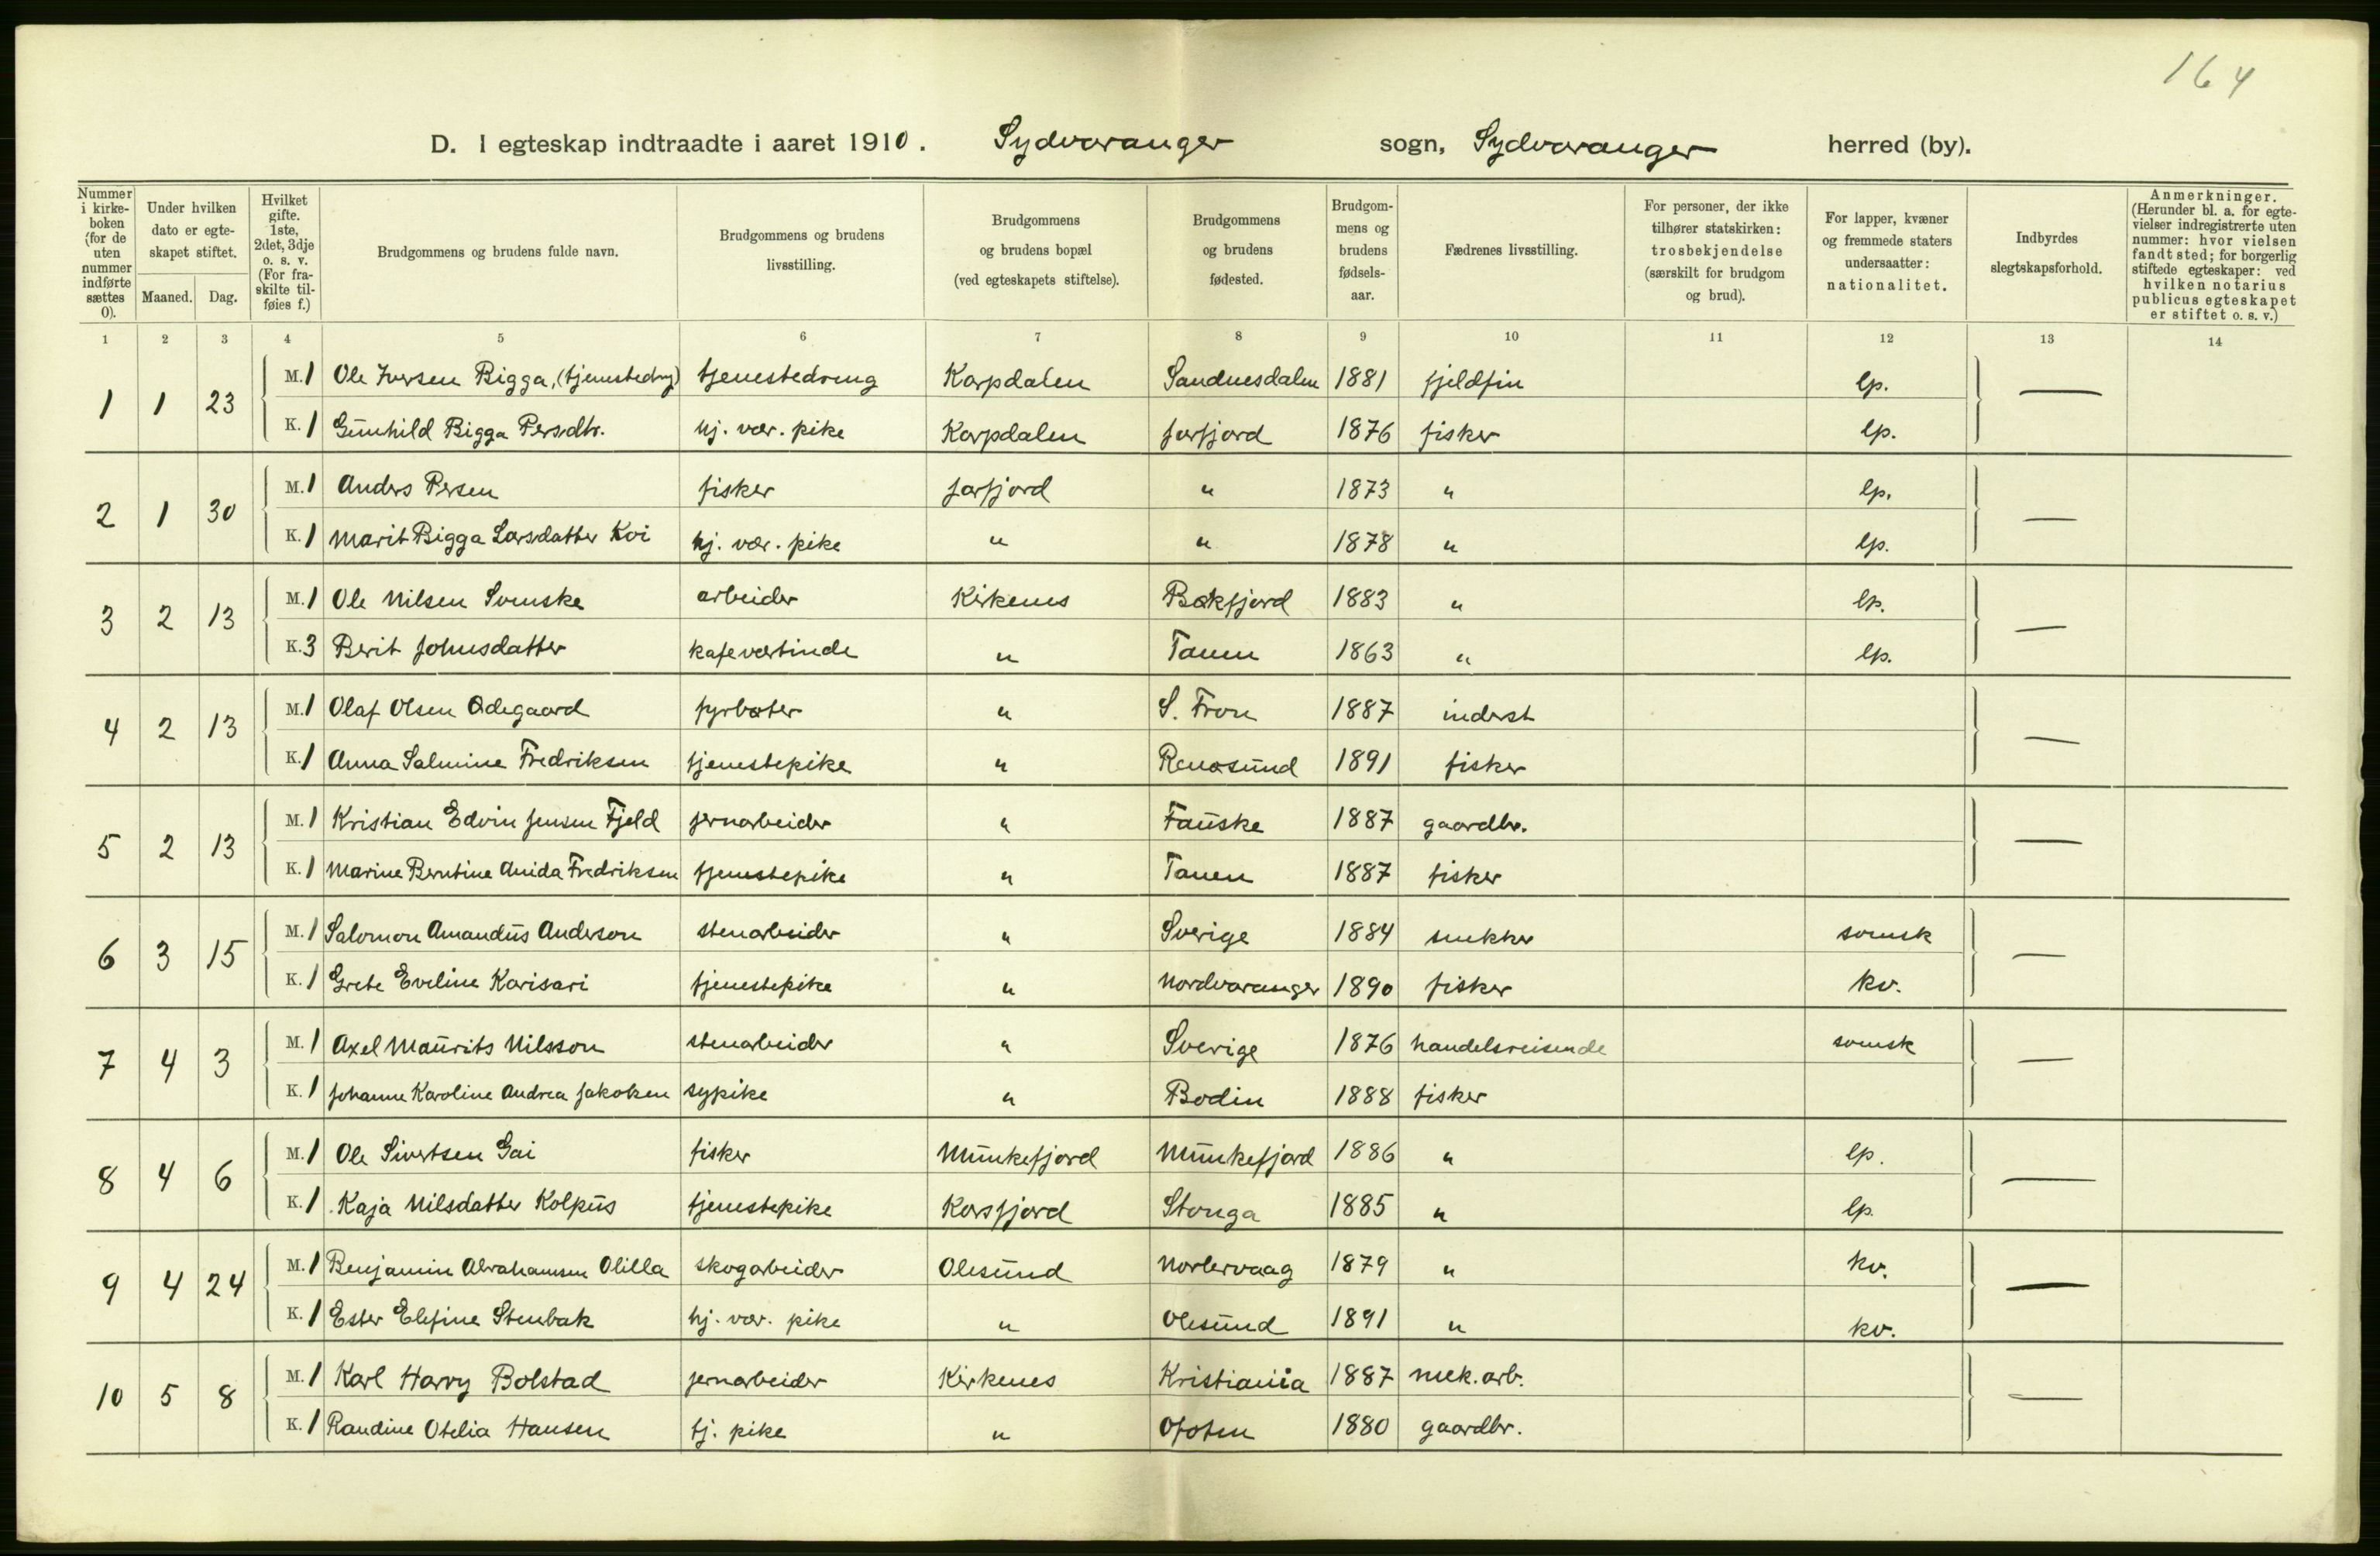 164
D. I egteskap indtraadte i aaret 1910. Sydvaranger sogn, Sydvaranger herred (by).
Nummer i kirke-boken (for de uten nummer indførte sættes 0).
Under hvilken dato er egte-skapet stiftet.
Maaned. Dag.
Hvilket gifte. 1ste, 2det, 3dje o. s. v. (For fra-skilte til-føies f.)
Brudgommens og brudens fulde navn.
Brudgommens og brudens livsstilling.
Brudgommens og brudens bopæl (ved egteskapets stiftelse).
Brudgommens og brudens fødested.
Brudgom-mens og brudens fødsels-aar.
Fædrenes livsstilling.
For personer, der ikke tilhører statskirken: trosbekjendelse (særskilt for brudgom og brud).
For lapper, kvæner og fremmede staters undersaatter: nationalitet.
Indbyrdes slegtskapsforhold.
Anmerkninger. (Herunder bl. a. for egte-vielser indregistrerte uten nummer: hvor vielsen fandt sted; for borgerlig stiftede egteskaper: ved hvilken notarius publicus egteskapet er stiftet o. s. v.)
1 2 3 4 5 6 7 8 9 10 11 12 13 14
1 1 23 M. 1 Ole Iversen Bigga, (tjenestedrg) tjenestedreng Karpdalen Sandnesdalen 1881 fjeldfin lp. —
K. 1 Gunhild Bigga Persdtr. hj. vær. pike Karpdalen Jarfjord 1876 fisker lp.
2 1 30 M. 1 Anders Persen fisker Jarfjord " 1873 " lp. —
K. 1 Marit Bigga Larsdatter Koi hj. vær. pike " " 1878 " lp.
3 2 13 M. 1 Ole Nilsen Svenske arbeider Kirkenes Bøkfjord 1883 " lp. —
K. 3 Berit Johnsdatter kafeværtinde " Tanen 1863 " lp.
4 2 13 M. 1 Olaf Olsen Ødegaard fyrbøter " S. Fron 1887 inderst —
K. 1 Anna Salmine Fredriksen tjenestepike " Renøsund 1891 fisker
5 2 13 M. 1 Kristian Edvin Jensen Fjeld jernarbeider " Fauske 1887 gaardbr. —
K. 1 Marine Berntine Anida Fredriksen tjenestepike " Tanen 1887 fisker
6 3 15 M. 1 Salomon Amandus Anderson stenarbeider " Sverige 1884 snekker svensk —
K. 1 Grete Eveline Karisari tjenestepike " Nordvaranger 1890 fisker kv.
7 4 3 M. 1 Axel Maurits Nilsson stenarbeider " Sverige 1876 handelsreisende svensk —
K. 1 Johanne Karoline Andrea Jakobsen sypike " Bodin 1888 fisker
8 4 6 M. 1 Ole Sivertsen Gai fisker Munkefjord Munkefjord 1886 " lp. —
K. 1 Kaja Nilsdatter Kolpus tjenestepike Korsfjord Stonga 1885 " lp.
9 4 24 M. 1 Benjamin Abrahamsen Olilla skogarbeider Olesund 1879 " kv. —
K. 1 Ester Elefine Stenbak hj. vær. pike " Olesund 1891 " kv.
10 5 8 M. 1 Karl Harry Bolstad jernarbeider Kirkenes Kristiania 1887 mek. arb. —
K. 1 Randine Otelia Hansen tj. pike " Ofoten 1880 gaardbr.